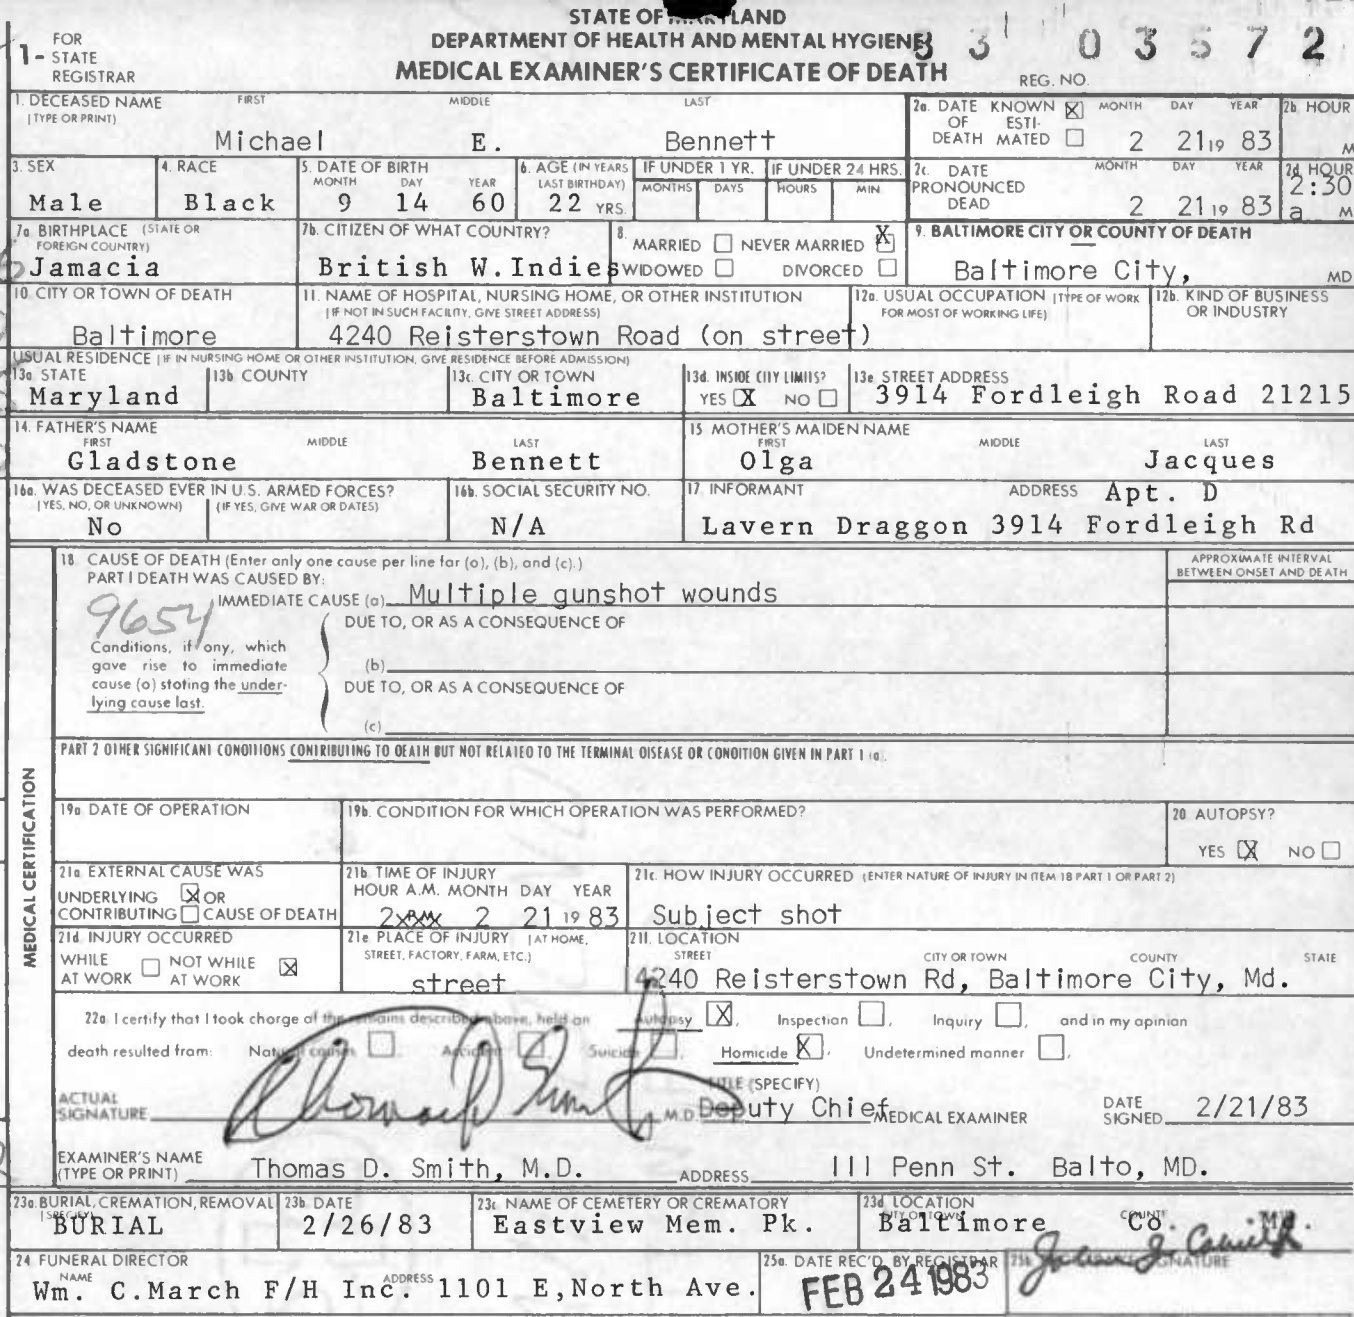 STATE OF MARYLAND
DEPARTMENT OF HEALTH AND MENTAL HYGIENE
MEDICAL EXAMINER'S CERTIFICATE OF DEATH
1- FOR STATE REGISTRAR
REG. NO. 83 03572
1. DECEASED NAME (TYPE OR PRINT) FIRST MIDDLE LAST
Michael E. Bennett
2a. DATE OF DEATH KNOWN [X] ESTIMATED [ ] MONTH DAY YEAR
2 21 19 83
2b HOUR
M
3. SEX
Male
4. RACE
Black
5. DATE OF BIRTH MONTH DAY YEAR
9 14 60
6. AGE (IN YEARS LAST BIRTHDAY)
22 YRS.
IF UNDER 1 YR. MONTHS DAYS
IF UNDER 24 HRS. HOURS MIN.
2c. DATE PRONOUNCED DEAD MONTH DAY YEAR
2 21 19 83
2d HOUR
2:30 a M
7a BIRTHPLACE (STATE OR FOREIGN COUNTRY)
Jamacia
7b. CITIZEN OF WHAT COUNTRY?
British W.Indies
8. MARRIED [ ] NEVER MARRIED [X]
WIDOWED [ ] DIVORCED [ ]
9. BALTIMORE CITY OR COUNTY OF DEATH
Baltimore City, MD
10 CITY OR TOWN OF DEATH
Baltimore
11. NAME OF HOSPITAL, NURSING HOME, OR OTHER INSTITUTION
(IF NOT IN SUCH FACILITY, GIVE STREET ADDRESS)
4240 Reisterstown Road (on street)
12a. USUAL OCCUPATION (TYPE OF WORK FOR MOST OF WORKING LIFE)
12b. KIND OF BUSINESS OR INDUSTRY
USUAL RESIDENCE (IF IN NURSING HOME OR OTHER INSTITUTION, GIVE RESIDENCE BEFORE ADMISSION)
13a STATE
Maryland
13b COUNTY
13c. CITY OR TOWN
Baltimore
13d. INSIDE CITY LIMITS?
YES [X] NO [ ]
13e STREET ADDRESS
3914 Fordleigh Road 21215
14. FATHER'S NAME FIRST MIDDLE LAST
Gladstone Bennett
15 MOTHER'S MAIDEN NAME FIRST MIDDLE LAST
Olga Jacques
16a. WAS DECEASED EVER IN U.S. ARMED FORCES?
(YES, NO, OR UNKNOWN) (IF YES, GIVE WAR OR DATES)
No
16b. SOCIAL SECURITY NO.
N/A
17. INFORMANT ADDRESS Apt. D
Lavern Draggon 3914 Fordleigh Rd
MEDICAL CERTIFICATION
18 CAUSE OF DEATH (Enter only one cause per line for (a), (b), and (c).)
APPROXIMATE INTERVAL BETWEEN ONSET AND DEATH
PART I DEATH WAS CAUSED BY:
IMMEDIATE CAUSE (a) Multiple gunshot wounds
9654
DUE TO, OR AS A CONSEQUENCE OF
Conditions, if any, which gave rise to immediate cause (a) stating the underlying cause last.
(b)
DUE TO, OR AS A CONSEQUENCE OF
(c)
PART 2 OTHER SIGNIFICANT CONDITIONS CONTRIBUTING TO DEATH BUT NOT RELATED TO THE TERMINAL DISEASE OR CONDITION GIVEN IN PART 1 (a).
19a DATE OF OPERATION
19b. CONDITION FOR WHICH OPERATION WAS PERFORMED?
20 AUTOPSY?
YES [X] NO [ ]
21a EXTERNAL CAUSE WAS
UNDERLYING [X] OR
CONTRIBUTING [ ] CAUSE OF DEATH
21b TIME OF INJURY
HOUR A.M. MONTH DAY YEAR
2 2 21 19 83
21c. HOW INJURY OCCURRED (ENTER NATURE OF INJURY IN ITEM 18 PART 1 OR PART 2)
Subject shot
21d INJURY OCCURRED
WHILE AT WORK [ ] NOT WHILE AT WORK [X]
21e PLACE OF INJURY (AT HOME, STREET, FACTORY, FARM, ETC.)
street
21f. LOCATION
STREET CITY OR TOWN COUNTY STATE
4240 Reisterstown Rd, Baltimore City, Md.
22a I certify that I took charge of the remains described above, held an Autopsy [X], Inspection [ ], Inquiry [ ], and in my opinion
death resulted from: Natural causes [ ], Accident [ ], Suicide [ ], Homicide [X], Undetermined manner [ ],
TITLE (SPECIFY)
ACTUAL SIGNATURE Thomas D Smith M.D. Deputy Chief MEDICAL EXAMINER DATE SIGNED 2/21/83
EXAMINER'S NAME (TYPE OR PRINT) Thomas D. Smith, M.D. ADDRESS 111 Penn St. Balto, MD.
23a. BURIAL, CREMATION, REMOVAL (SPECIFY)
BURIAL
23b. DATE
2/26/83
23c NAME OF CEMETERY OR CREMATORY
Eastview Mem. Pk.
23d LOCATION CITY OR TOWN COUNTY
Baltimore Co. Md.
24 FUNERAL DIRECTOR
NAME ADDRESS
Wm. C.March F/H Inc. 1101 E,North Ave.
25a. DATE REC'D. BY REGISTRAR
FEB 24 1983
25b. SIGNATURE